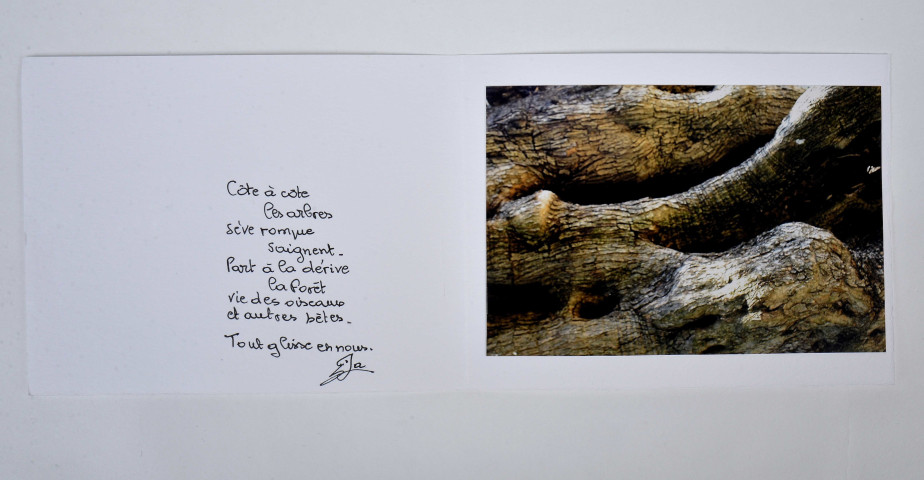 Côte à côte
les arbres
sève rompue
saignent.
Part à la dérive
la forêt
vie des oiseaux
et autres bêtes.
Tout glisse en nous.